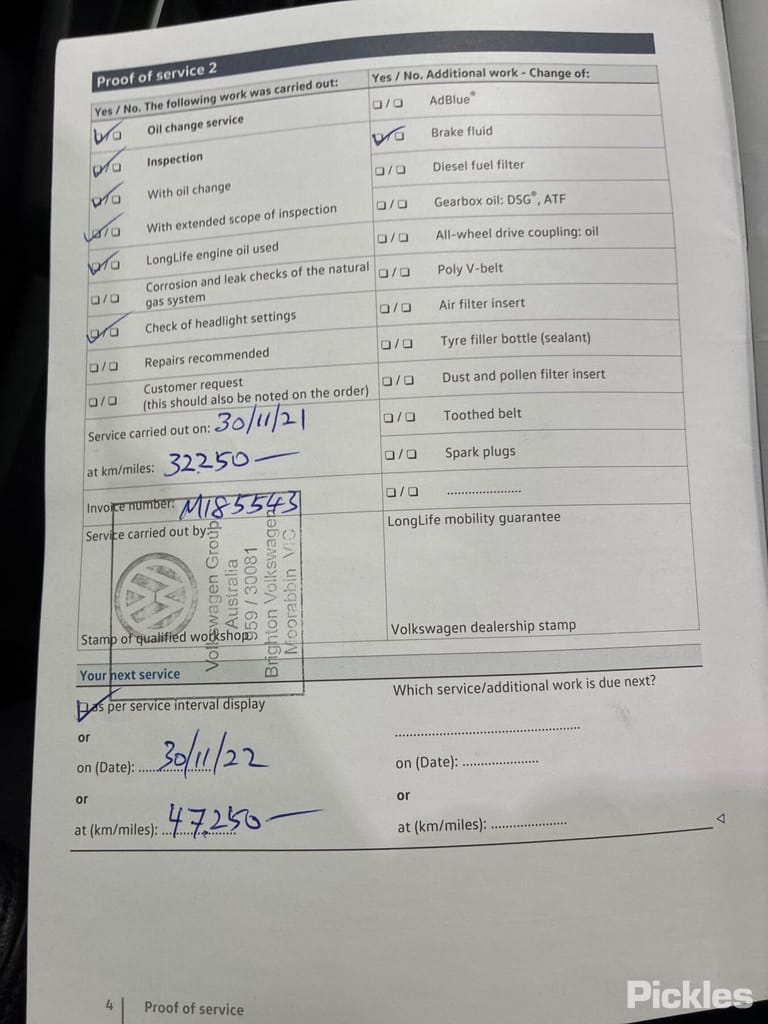 Proof of service 2
Yes / No. The following work was carried out:
Oil change service
Inspection
With oil change
With extended scope of inspection
LongLife engine oil used
Corrosion and leak checks of the natural
gas system
Check of headlight settings
Repairs recommended
Customer request
(this should also be noted on the order)
Service carried out on: 30/11/21
at km/miles: 32250 —
Invoice number: M185543
Service carried out by:
Stamp of qualified workshop
Volkswagen Group
Australia
959 / 30081
Brighton Volkswagen
Moorabbin VIC
Yes / No. Additional work - Change of:
AdBlue®
Brake fluid
Diesel fuel filter
Gearbox oil: DSG®, ATF
All-wheel drive coupling: oil
Poly V-belt
Air filter insert
Tyre filler bottle (sealant)
Dust and pollen filter insert
Toothed belt
Spark plugs
......................
LongLife mobility guarantee
Volkswagen dealership stamp
Your next service
as per service interval display
or
on (Date): 30/11/22
or
at (km/miles): 47250 —
Which service/additional work is due next?
..................................................
on (Date): .....................
or
at (km/miles): .....................
4 Proof of service
Pickles